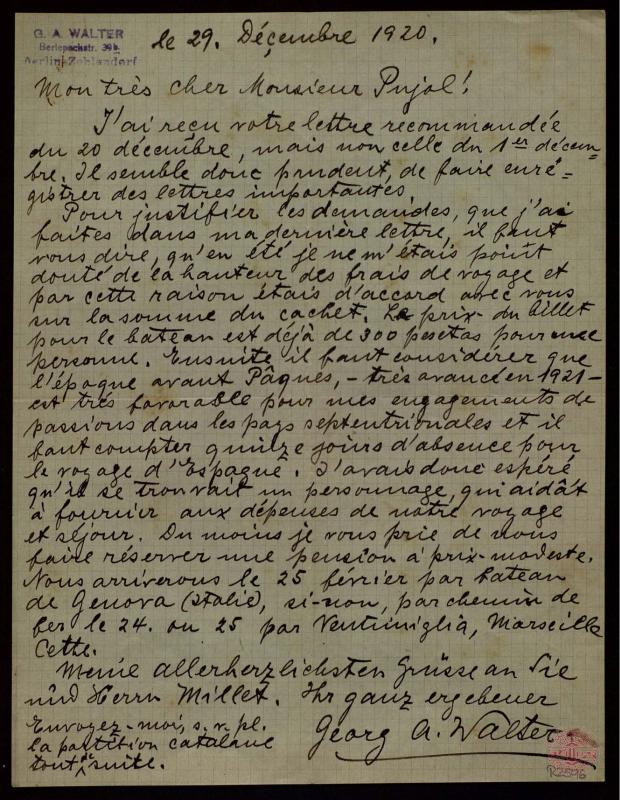 G. A. WALTER
Berlepschstr. 39b
Berlin-Zehlendorf
le 29. Décembre 1920.
Mon très cher Monsieur Pujol!
J'ai reçu votre lettre recommandée
du 20 décembre, mais non celle du 1er décem-
bre. Il semble donc prudent, de faire enré-
gistrer des lettres importantes.
Pour justifier les demandes, que j'ai
faites dans ma dernière lettre, il faut
vous dire, qu'en été je ne m'étais point
douté de la hauteur des frais de voyage et
par cette raison étais d'accord avec vous
sur la somme du cachet. Le prix du billet
pour le bateau est déjà de 300 pesetas pour une
personne. Ensuite il faut considérer que
l'époque avant Pâques, - très avancé en 1921 -
est très favorable pour mes engagements de
passions dans les pays septentrionales et il
faut compter quinze jours d'absence pour
le voyage d'Espagne. J'avais donc espéré
qu'il se trouvait un personnage, qui aidât
à fournier aux dépenses de notre voyage
et séjour. Du moins je vous prie de nous
faire réserver une pension à prix-modeste.
Nous arriverons le 25 février par bateau
de Genova (Italie), si-non, par chemin de
fer le 24. ou 25 par Ventimiglia, Marseille
Cette.
Meine allerherzlichsten Grüsse an Sie
und Herrn Millet. Ihr ganz ergebener
Georg A. Walter
Envoyez-moi, s. v. pl.
la partition catalane
tout de suite.
R2596